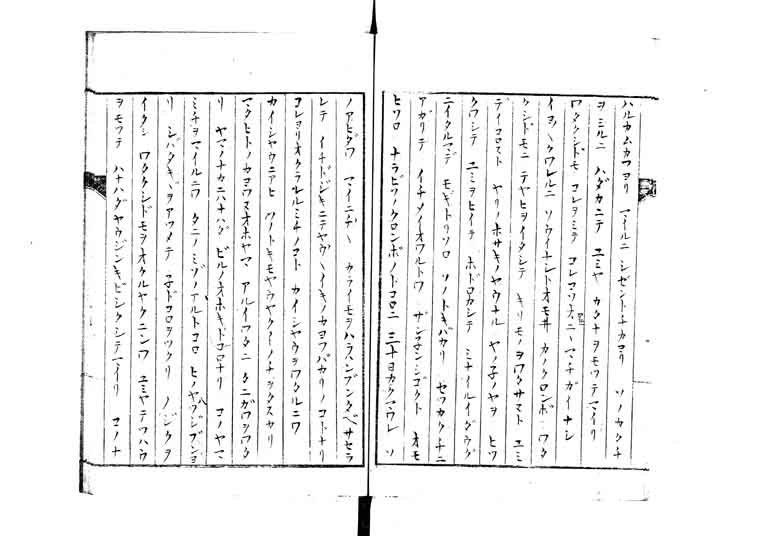 ハルカムカフヨリ マイルニ シゼントチカヨリ ソノカタチ
ヲミルニ ハダカニテ ユミヤ カタナヲモツテマイリ
ワタクシドモ コレヲミテ コレコソオニヽマチガイナシ
イヨヽヽクワレルニ ソウイナシトオモ井 カノクロンボ ワタ
クシドモニ テヤヒヲイタシテ キリモノヲワタサマト ユミ
デイコロスト ヤリノホサキノヤウナル ヤノ子ノヤヲ ヒツ
クワシテ ユミヲヒイテ ホドロカシテ ミナイルイダウグ
ニイタルマデ モギトリソロ ソノトキバカリ セツカクチニ
アガリテ イチメイオワルトワ ザン子ンシゴクト オモ
ヒソロ ナラビソノクロンボノトコロニ 三十ヨカクマワレ ソ
ノアヒダワ マイニチヽヽ カライモヲハラスンブンタベサセラ
レテ イチドジキニテヤウヽヽイキノカヨフバカリノコトナリ
コレヨリオクラレルミチノコト カイシヤウヲワタルニワ
カイシヤウニアヒ ソノトキモヤウヤクイノチヲタスカリ
マタヒトノカヨワヌオホヤマ アルイワタニ タニガワヲワタ
リ ヤマノナカニハナハダ ビルノオホキドゴロナリ コノヤマ
ミチヲマイルニワ タニノミゾノアルトコロ ヒノヤハジブンヨ
リ シバタキヾヲアツメテ 子ドコロヲツクリ ノジクヲ
イタシ ワタクシドモヲオクルヤクニンワ ユミヤテツハウ
ヲモツテ ハナハダヤウジンキビシクシテマイリ コノナ